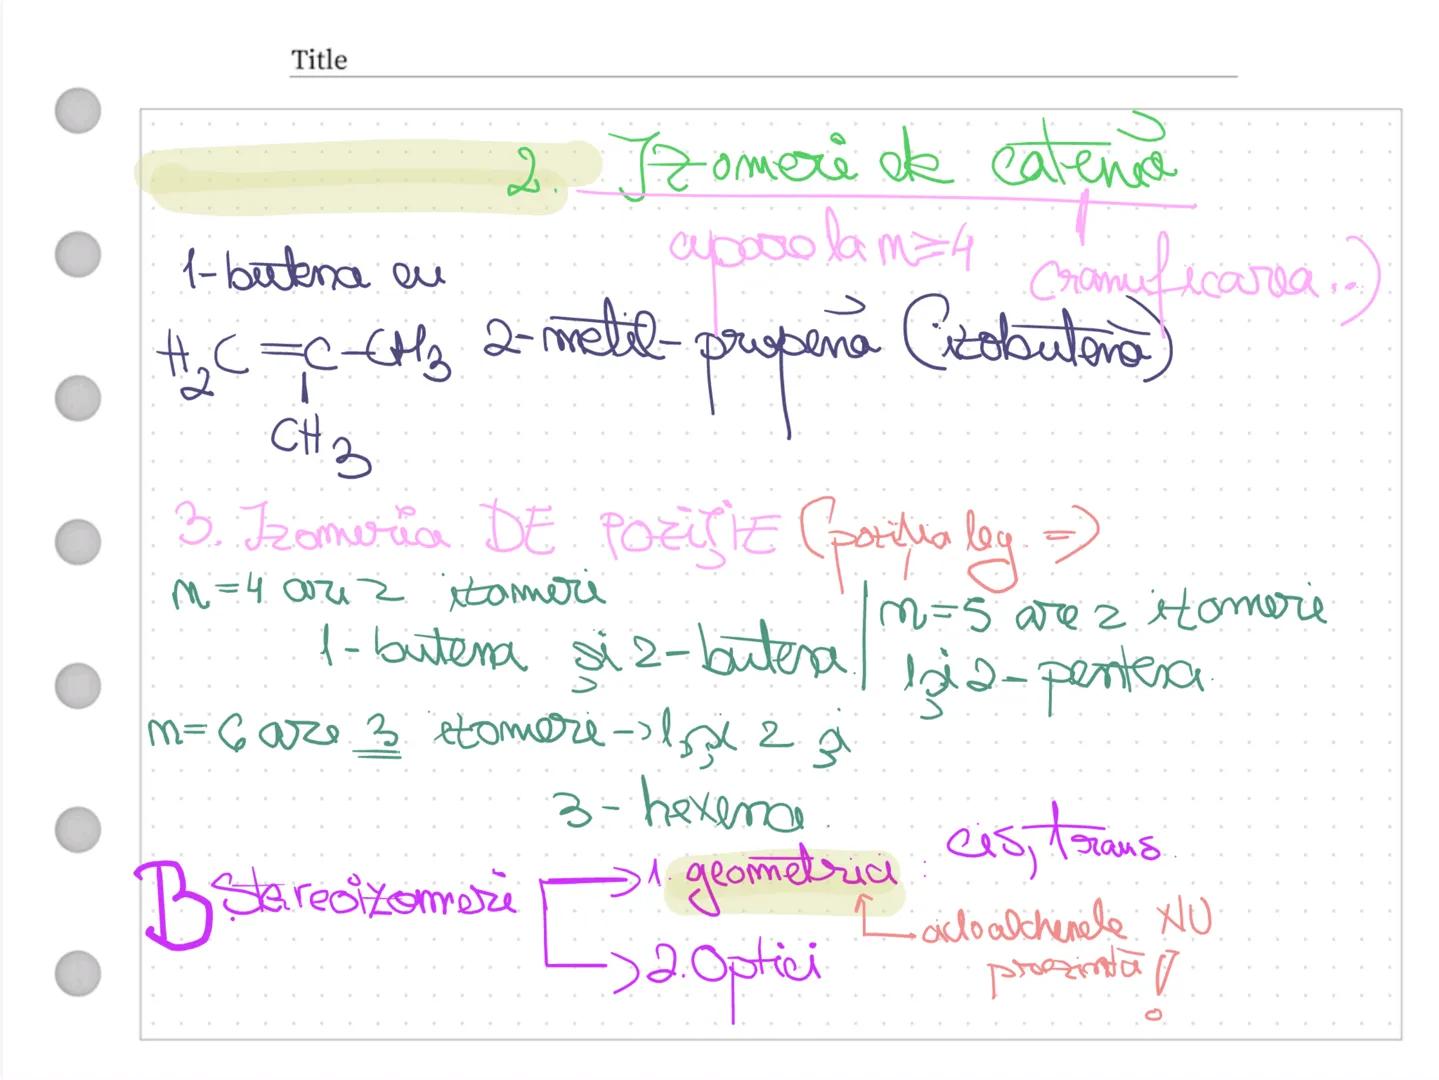 Title
2. Izomeri de catenă
apare la n≥4
(ramificarea..)
1-butena cu
H2C=C-CH3 2-metil-propenă (izobutenă)
CH3
3. Izomeria DE POZIȚIE (poziția leg =)
n=4 are 2 izomeri
1-butena și 2-butena
n=5 are 2 izomeri
1 și 2-pentena
n=6 are 3 izomeri -> 1, și 2 și
3-hexena
B Stereoizomeri
1. geometrici : cis, trans
cicloalchenele NU
prezintă!
2. Optici